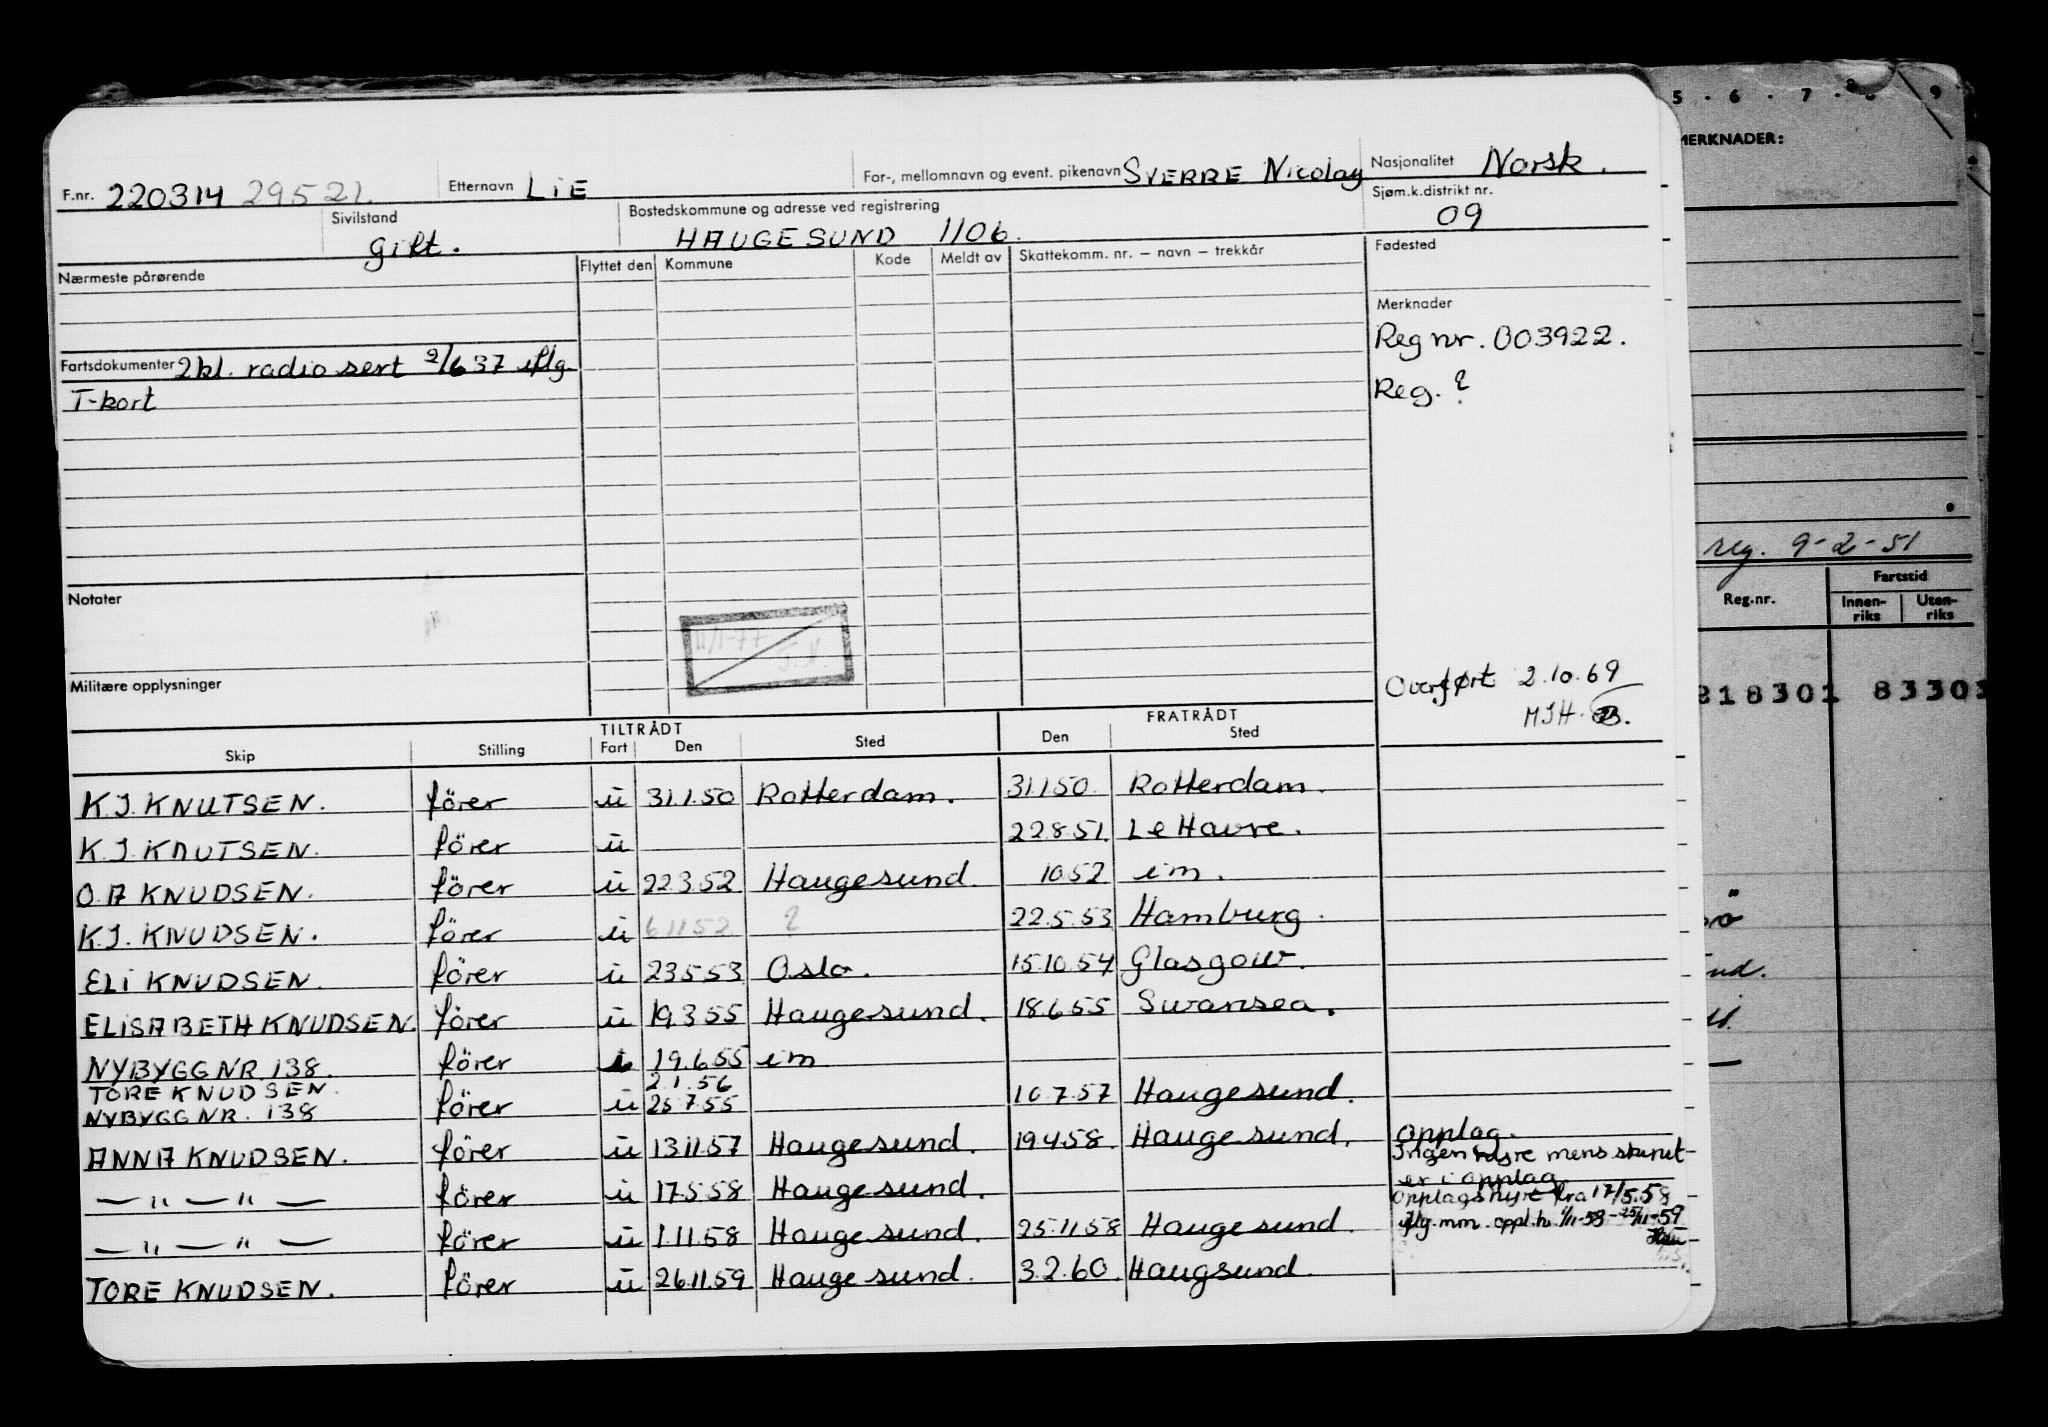 F.nr. 220314 29521. Etternavn LIE For-, mellomnavn og event. pikenavn SVERRE Nicolay Nasjonalitet Norsk.
Sivilstand gift. Bostedskommune og adresse ved registrering HAUGESUND 1106. Sjøm.k.distrikt nr. 09
Nærmeste pårørende Flyttet den Kommune Kode Meldt av Skattekomm. nr. – navn – trekkår Fødested
Merknader
Reg nr. 003922.
Fartsdokumenter 2kl. radio sert 2/6 37 iflg.
T-kort
Reg. ?
Notater
11/1-77
Militære opplysninger
Overført 2.10.69
MJH.
TILTRÅDT FRATRÅDT
Skip Stilling Fart Den Sted Den Sted
K.J. KNUTSEN. förer u 31.1.50 Rotterdam. 31.1.50. Rotterdam.
K.J. KNUTSEN. förer u 22.8.51. Le Havre.
O.A KNUDSEN. förer u 22.3.52 Haugesund. 10.52 im.
K.J. KNUDSEN. förer u 6.11.52 ? 22.5.53 Hamburg.
ELI KNUDSEN. förer u 23.5.53 Oslo. 15.10.54 Glasgow.
ELISABETH KNUDSEN. förer u 19.3.55 Haugesund. 18.6.55 Swansea.
NYBYGG NR. 138. förer 19.6.55 im
TORE KNUDSEN. 2.1.56
NYBYGG NR. 138 förer u 25.7.55 10.7.57 Haugesund.
ANNA KNUDSEN. förer u 13.11.57 Haugesund. 19.4.58. Haugesund. Opplag.
Ingen hyre mens skipet
er i opplag
— " — " — förer u 17.5.58 Haugesund. Opplagshyre fra 17/5.58
— " — " — förer u 1.11.58 Haugesund. 25.11.58 Haugesund. iflg. mm. oppl.h. 1/11-58-25/11-59
TORE KNUDSEN. förer u 26.11.59 Haugesund. 3.2.60. Haugsund.
5 · 6 · 7 · 8 · 9
MERKNADER:
reg. 9-2-51
Reg.nr. Fartstid
Innen-riks Uten-riks
218301 83301
nd.